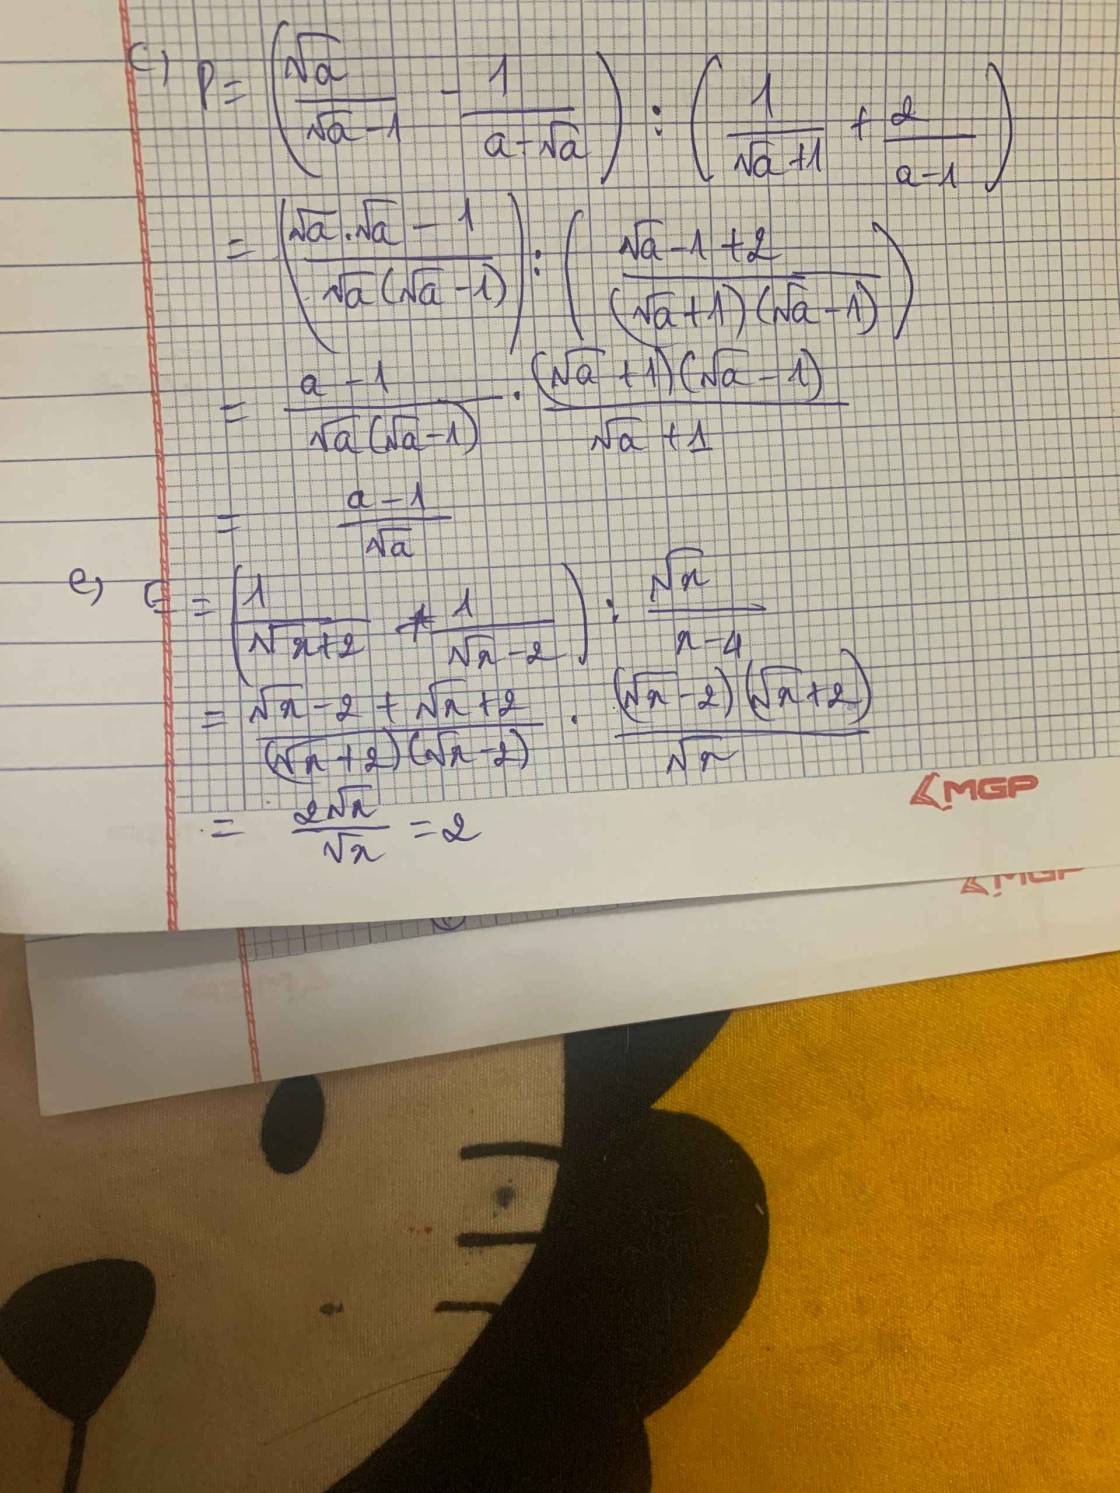 c) P = (√a/(√a-1) - 1/(a-√a)) : (1/(√a+1) + 2/(a-1))
= ((√a.√a - 1)/(√a(√a-1))) : ((√a-1+2)/((√a+1)(√a-1)))
= (a-1)/(√a(√a-1)) . ((√a+1)(√a-1))/(√a+1)
= (a-1)/√a
e) = (1/(√x+2) + 1/(√x-2)) : √x/(x-4)
= (√x-2+√x+2)/((√x+2)(√x-2)) . ((√x-2)(√x+2))/√x
= 2√x/√x = 2
MGP
MGP